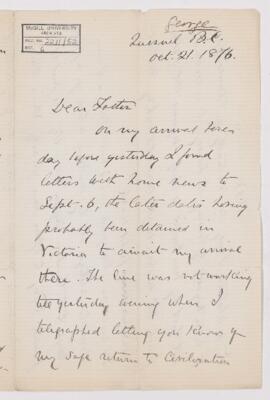 McGILL UNIVERSITY
ARCHIVES
ACC. NO. 2211/52
REF. 6
George
Quesnel B.C.
Oct. 21. 1876.
Dear Father
On my arrival here
day before yesterday I found
letters with home news to
Sept. 6, the later dates having
probably been detained in
Victoria to await my arrival
there. The line was not working
till yesterday evening when I
telegraphed letting you know of
my safe return to Civilization